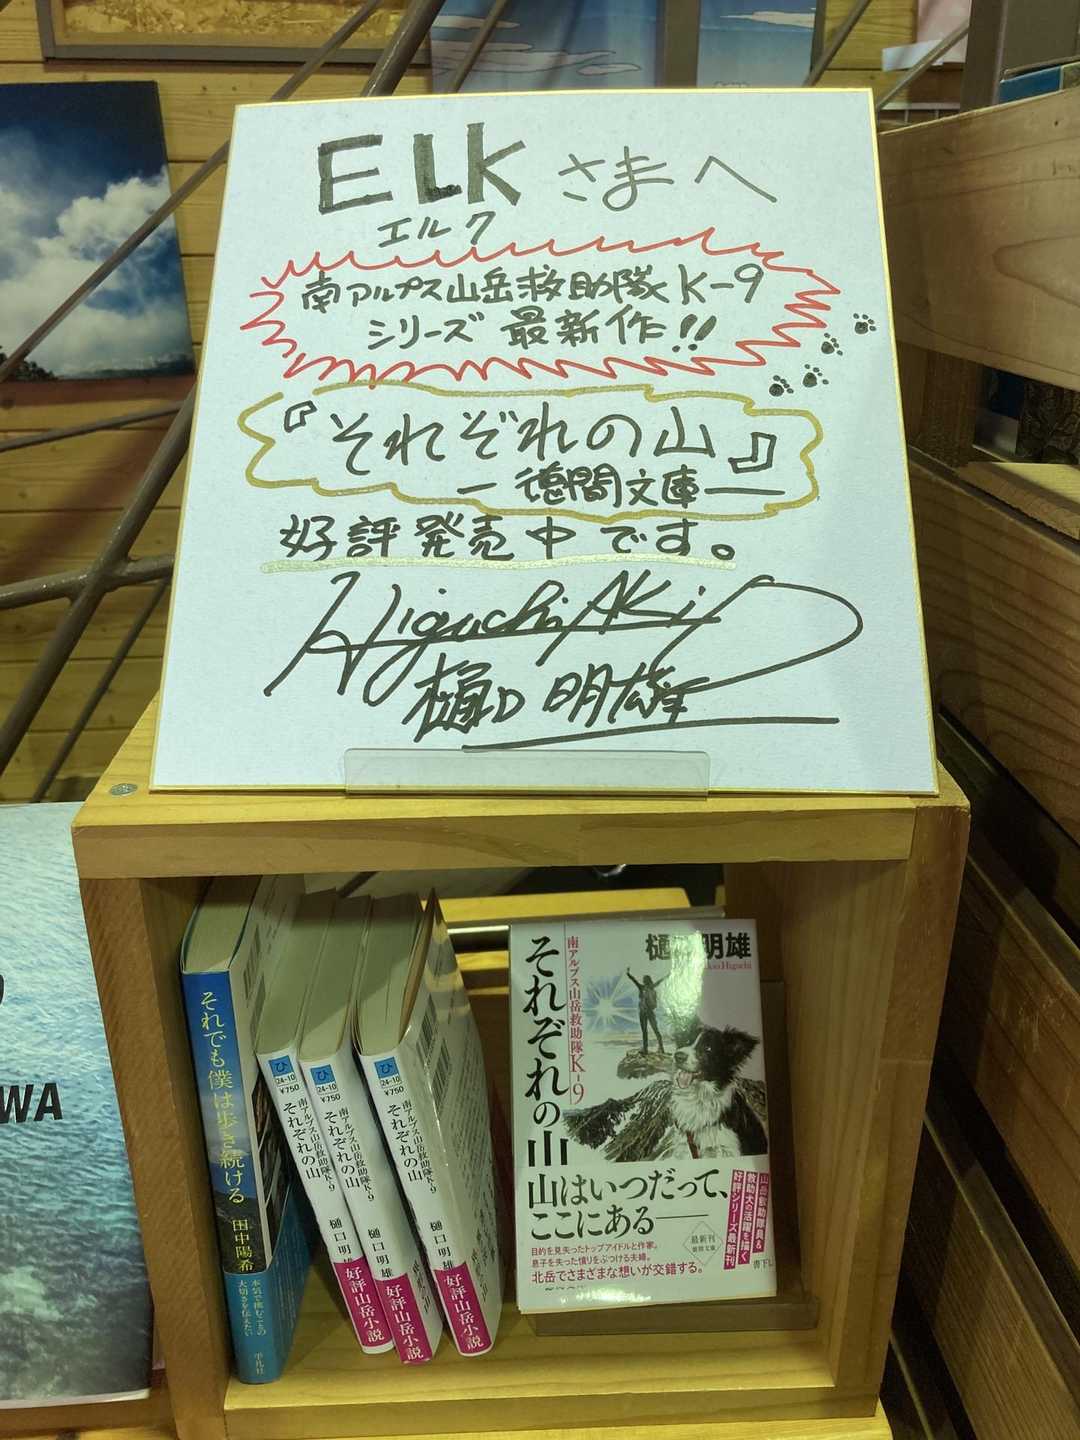 ELK さまへ
エルク
南アルプス山岳救助隊K-9
シリーズ 最新作!!
『それぞれの山』
ー徳間文庫ー
好評発売中です。
Higuchi AKio
樋口明雄
WA
それでも僕は歩き続ける
田中陽希
本気で挑むことの
大切さを伝えたい
平凡社
ひ
24-10
¥750
南アルプス山岳救助隊K-9
それぞれの山
樋口明雄
好評山岳小説
ひ
24-10
¥750
南アルプス山岳救助隊K-9
それぞれの山
樋口明雄
好評山岳小説
ひ
24-10
¥750
南アルプス山岳救助隊K-9
それぞれの山
樋口明雄
好評山岳小説
樋口明雄
Higuchi
南アルプス山岳救助隊K-9
それぞれの山
山はいつだって、
ここにある――
目的を見失ったトップアイドルと作家。
息子を失った憤りをぶつける夫婦。
北岳でさまざまな想いが交錯する。
最新刊
徳間文庫
山岳救助隊員&
救助犬の活躍を描く
好評シリーズ最新刊
書下し